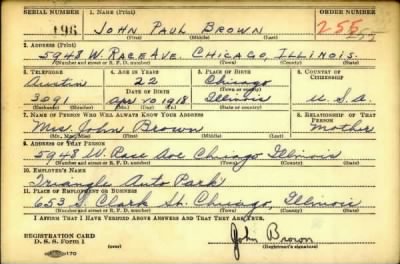 SERIAL NUMBER 1. NAME (Print) ORDER NUMBER
196 JOHN PAUL BROWN 255
2. ADDRESS (Print)
5948 W. RACE AVE. CHICAGO, ILLINOIS.
(Number and street or R. F. D. number) (Town) (County) (State)
3. TELEPHONE 4. AGE IN YEARS 5. PLACE OF BIRTH 6. COUNTRY OF CITIZENSHIP
Austin 22 Chicago
DATE OF BIRTH (Town or county)
3091 Apr 10 1918 Illinois U.S.A.
(Exchange) (Number) (Mo.) (Day) (Yr.) (State or country)
7. NAME OF PERSON WHO WILL ALWAYS KNOW YOUR ADDRESS 8. RELATIONSHIP OF THAT PERSON
Mrs. John Brown Mother
(Mr., Mrs., Miss) (First) (Middle) (Last)
9. ADDRESS OF THAT PERSON
5948 W. Race Ave Chicago Illinois
(Number and street or R. F. D. number) (Town) (County) (State)
10. EMPLOYER'S NAME
Triangle Auto Park
11. PLACE OF EMPLOYMENT OR BUSINESS
653 S. Clark St. Chicago, Illinois
(Number and street or R. F. D. number) (Town) (County) (State)
I AFFIRM THAT I HAVE VERIFIED ABOVE ANSWERS AND THAT THEY ARE TRUE.
REGISTRATION CARD
D. S. S. Form 1 (over) John Brown
(Registrant's signature)